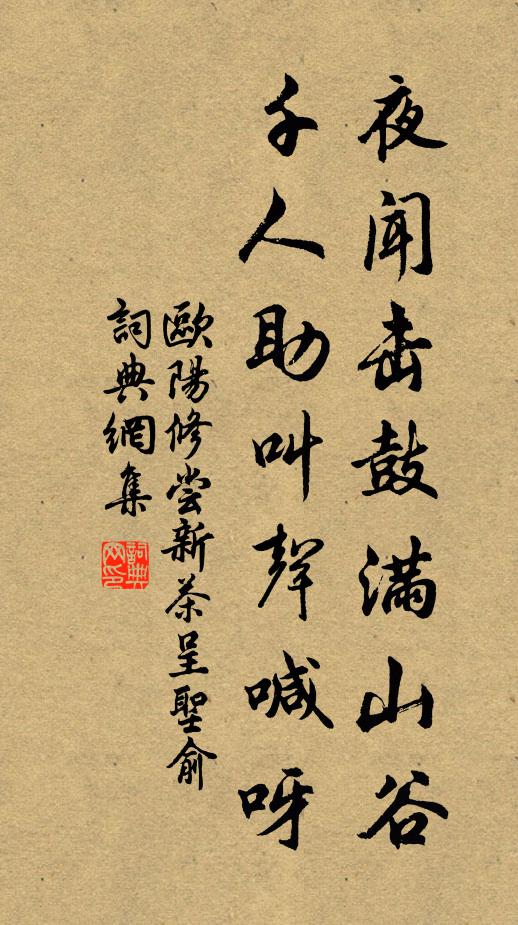 夜闻击鼓满山谷
千人助叫声喊呀
歐陽修尝新茶呈聖俞
詞典網集
詞典網印